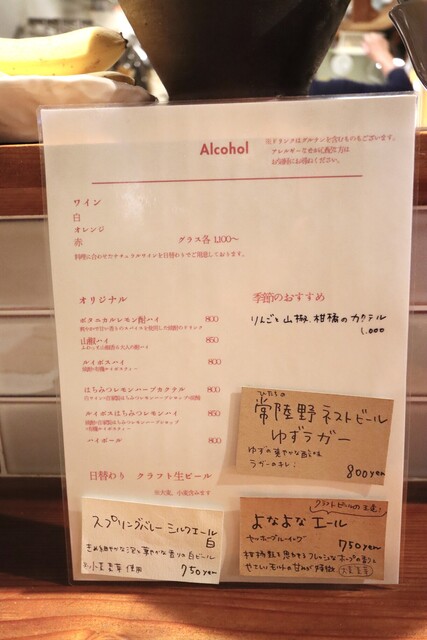 Alcohol
※ドリンクはグルテンを含むものもございます。
アレルギーなど心配な方は
お気軽にお尋ねください。
ワイン
白
オレンジ
赤
グラス各 1,100〜
料理に合わせたナチュラルワインを日替わりでご用意しております。
オリジナル
ボタニカルレモン酎ハイ 800
山椒ハイ 850
ルイボスハイ 800
はちみつレモンハーブカクテル 800
ルイボスはちみつレモンハイ 850
ハイボール 800
日替わり クラフト生ビール
※大麦、小麦含みます
季節のおすすめ
りんごと山椒、柑橘のカクテル
1,000
ひたちの
常陸野ネストビール
ゆずラガー
ゆずの爽やかな酸味
ラガーのキレ!
800yen
スプリングバレー シルクエール
白
きめ細やかな泡と華やかな香りの白ビール
※小麦麦芽使用
750yen
クラフトビールの王道!
よなよなエール
ヤッホーブルーイング
750yen
柑橘類を思わせるフレッシュなホップの香りと
やさしいモルトの甘みが特徴